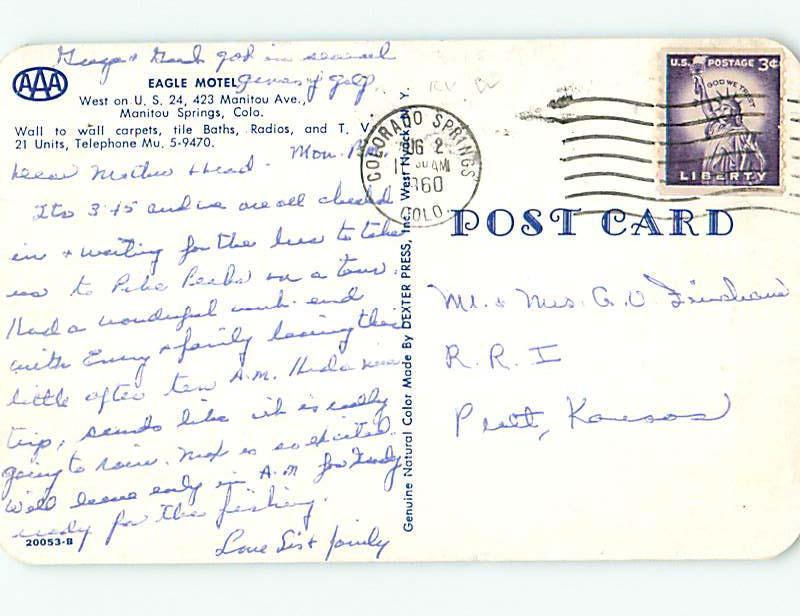 in several
games of golf.
AAA
EAGLE MOTEL
West on U. S. 24, 423 Manitou Ave.,
Manitou Springs, Colo.
Wall to wall carpets, tile Baths, Radios, and T. V.
21 Units, Telephone Mu. 5-9470.
Dear Mother & Dad. Mon. P.M.
Its 3:45 and we are all checked
in & waiting for the bus to take
us to Pike Peaks on a tour.
Had a wonderful week-end
with & family leaving there
little after ten A.M. Had a nice
trip, sounds like it is really
going to rain. is so excited.
Will leave early in A.M for
ready for the fishing.
Love Sis & family
20053-B
Genuine Natural Color Made By DEXTER PRESS, Inc. West Nyack, N. Y.
COLORADO SPRINGS
2
AM
1960
COLO.
U.S. POSTAGE 3¢
IN GOD WE TRUST
LIBERTY
POST CARD
Mr. & Mrs. G. O.
R. R. I
Pratt, Kansas